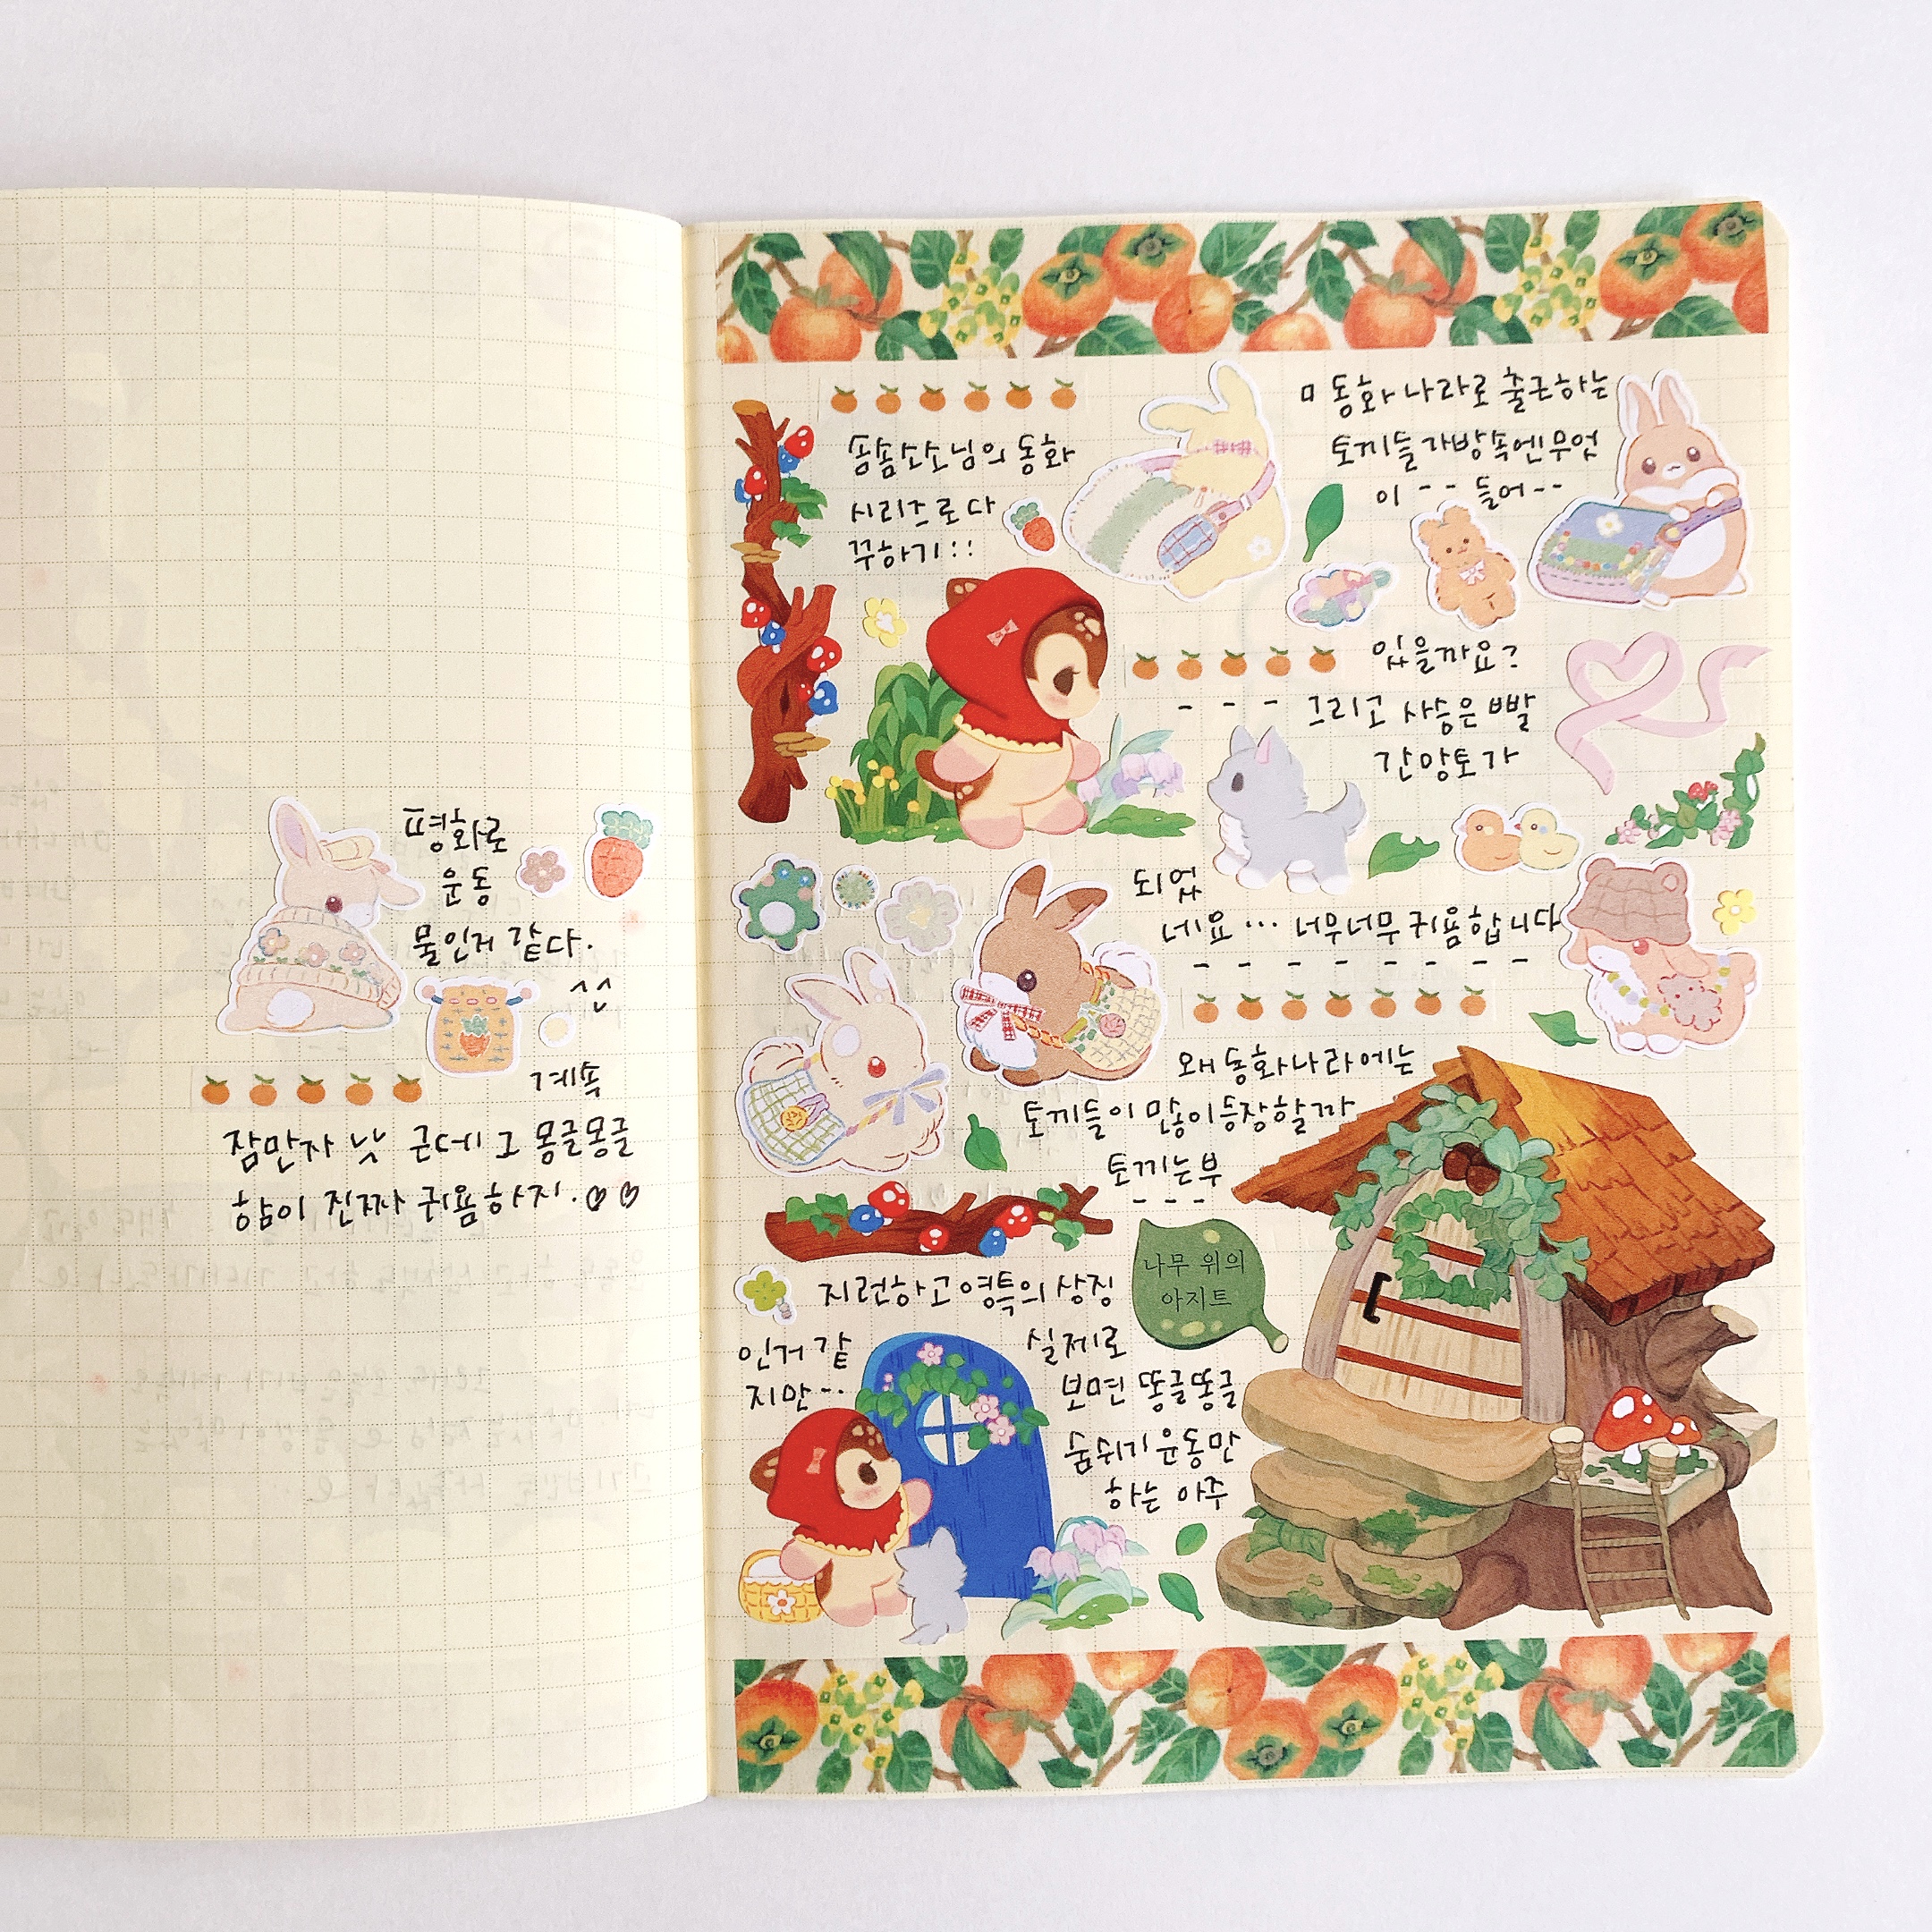 솜솜소소님의 동화
시리즈로다
꾸하기::
ㅁ 동화 나라로 출근하는
토끼들 가방속엔무엇
이 -- 들어--
있을까요?
--- 그리고 사슴은 빨
간망토가
되었
네요 ... 너무너무 귀욤합니다
왜 동화나라에는
토끼들이 많이등장할까
토끼는부
지런하고 영특의 상징
인거 같
지만--
나무 위의
아지트
실제로
보면 똥글똥글
숨쉬기 운동만
하는 아주
평화로
운 동
물인거 같다.
^^
계속
잠만자 낫 근데 그 몽글몽글
함이 진짜 귀욤하지. ♡♡